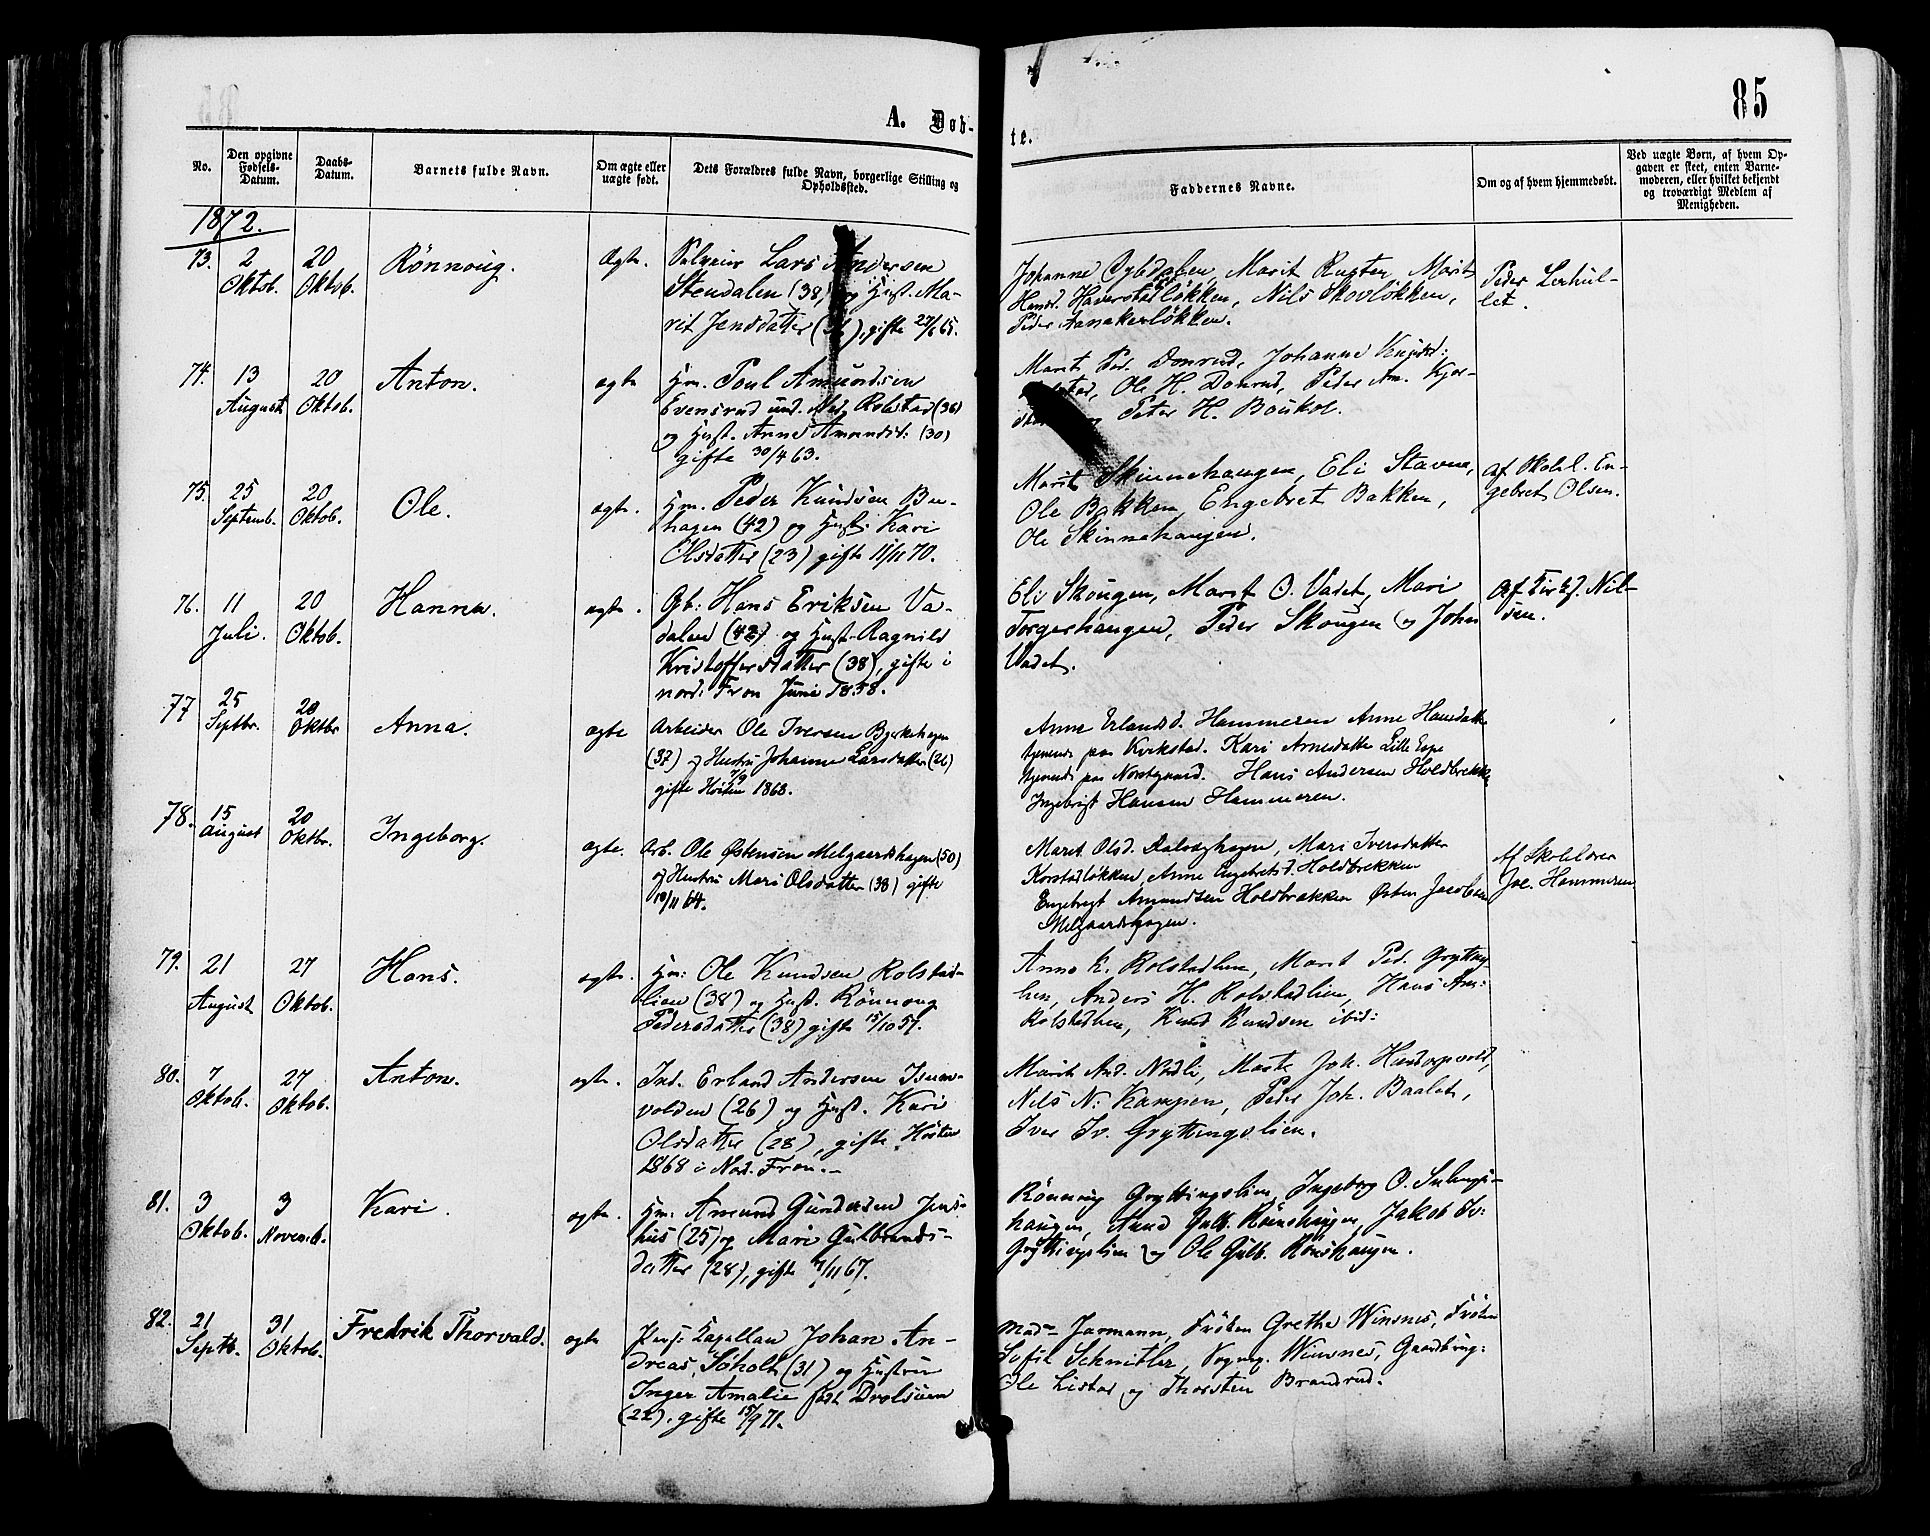 85
A. Døb-
te.
No.
Den opgivne Fødsels-Datum.
Daabs-Datum.
Barnets fulde Navn.
Om ægte eller uægte født.
Dets Forældres fulde Navn, borgerlige Stilling og Opholdssted.
Faddernes Navne.
Om og af hvem hjemmedøbt.
Ved uægte Børn, af hvem Op-
gaven er skeet, enten Barne-
moderen, eller hvilket bekjendt
og troværdigt Medlem af
Menigheden.
1872.
73. 2 Oktob. 20 Oktob. Rönnoug. Ægte. Lars Andersen
Stendalen (38) og Hust. Ma-
rit Jensdatter gifte 65.
Johanne Marit Rusten, Marit
Hansd. Haverstadløkken, Nils Skovløkken,
Peder Aanakerløkken.
Peder Lerhul-
let.
74. 13 August 20 Oktob. Anton. ægte Hm. Poul Amundsen
Evensrud und. Rolstad (36)
og Hust. Anne Amundsd: (30)
gifte 30/4 63.
Marit Ped. Domrud, Johanne
Ole H. Domrud, Peder Am.
Peter H. Boukol.
75. 25 Septemb. 20 Oktob. Ole. ægte. Hm. Peder Knudsen
hagen (42) og Hust: Kari
Olsdatter (23) gifte 11/11 70.
Marit Skinnehaugen, Eli Stavne,
Ole Bakken, Engebret Bakken,
Ole Skinnehaugen.
af Skolel. En-
gebret Olsen.
76. 11 Juli. 20 Oktob. Hanna. ægte. Gb: Hans Eriksen Va-
dalen (42) og Hust. Ragnild
Kristoffersdatter (38), gifte i
nord: Fron Juni 1858.
Eli Skougen, Marit O. Vadet, Mari
Torgershaugen, Peder Skougen og John
Vadet.
af Kirkj. Nil-
sen.
77 25 Septbr. 20 Oktbr Anna. ægte Arbeider Ole Iversen Bjerkehagen
(37) og Hustru Johanne Larsdatter (26)
gifte Høsten 1868.
Anne Erlandsd. Hammeren Anne Hansdatter
tjenende paa Kirkestad. Kari Arnesdatter Lille Espe
tjenende paa Nordgaard. Hans Andersen Holdbrekken
Ingebrigt Hansen Hammeren.
78. 15 August 20 Oktbr. Ingeborg. ægte. Arb. Ole Østensen Melgaardshagen (50)
og Hustru Mari Olsdatter (38) gifte
10/11 64.
Maret Olsd. Mari Iversdatter
Korstadløkken, Anne Engebretsd. Holdbrekken
Engebregt Amundsen Holdbrækken Østen Jacobsen
Melgaardshagen.
Af Skolelærer
Joc. Hammeren
79. 21 August 27 Oktob. Hans. ægte. Hm: Ole Knudsen Rolstad-
lien (38) og Hust. Rönnoug
Pedersdatter (38) gifte 15/10 57.
Anne K. Rolstadlien, Marit Ped. Grytting-
lien, Anders H. Rolstadlien, Hans Am:
Rolstadlien, Knud Knudsen ibid:
80. 7 Oktob. 27 Oktob. Anton. ægte. Ind. Erland Andersen
volden (26) og Hust. Kari
Olsdatter (28), gifte Høsten
1868 i Nord. Fron.
Marit And. Nordli, Marte Joh. Hundorpvold,
Nils N: Kampen, Peder Joh. Baalet,
Iver Iv. Gryttingslien.
81. 3 Oktob. 3 Novemb. Kari. ægte. Hm: Amund Gundersen Jens-
hus (25) og Mari Gulbrands-
datter (28), gifte 7/11 67.
Rönnoug Gryttingslien, Ingeborg O.
haugen, Anne Gulb. Rönshaugen, Jakob Iv:
Gryttingslien og Ole Gulb. Rönshaugen.
82. 21 Septb. 31 Oktob. Fredrik Thorvald. ægte Pers: Kapellan Johan An-
dreas Søholt (31) og Hustru
Inger Amalie født Drolsum
(22), gifte 15/9 71.
Mad. Jarmann, Frøken Grethe Winsnes, Frøken
Sofie Schnitler, Winsnes, Gaardbrug:
Ole Listad og Thorsten Brandrud.